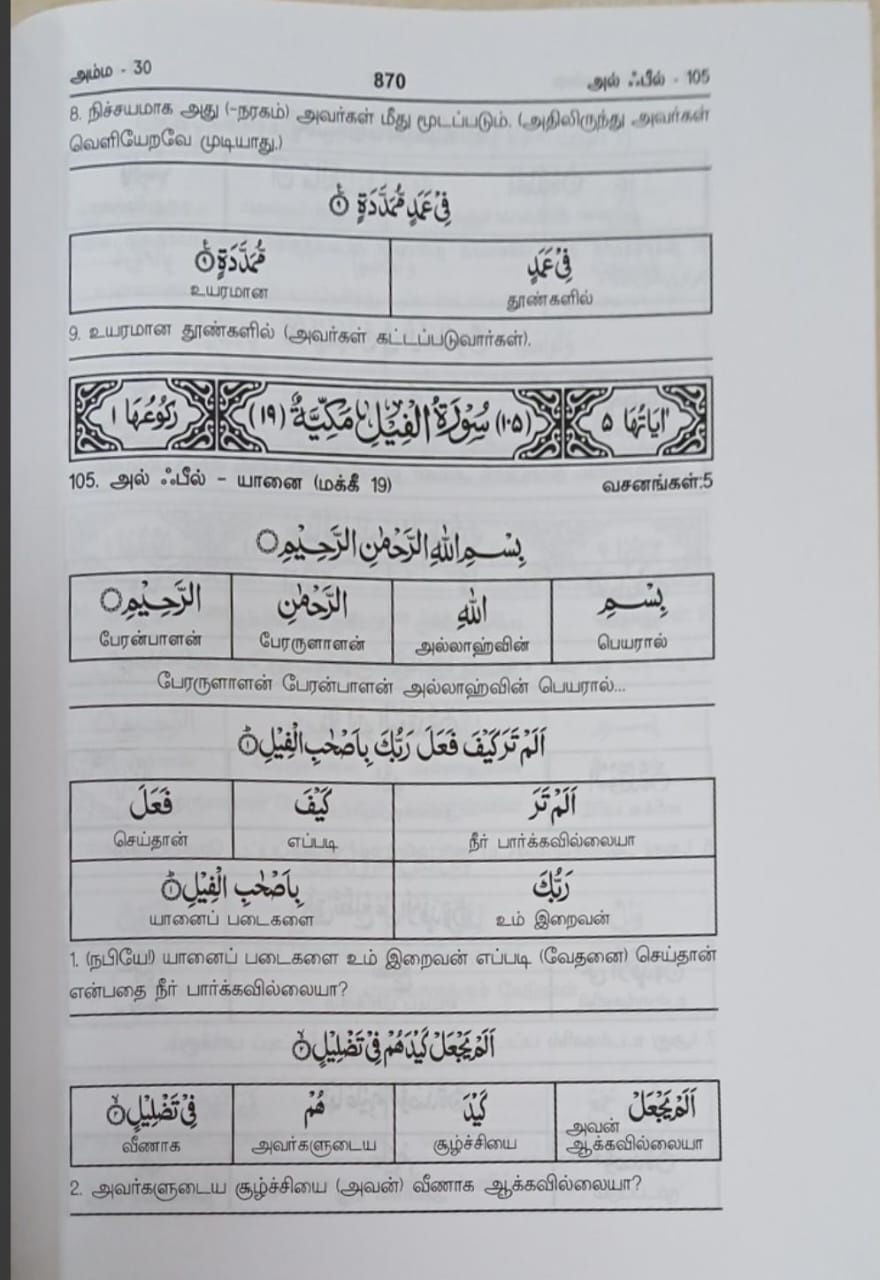 அம்ம - 30 870 அல் ஃபீல் - 105
8. நிச்சயமாக அது (-நரகம்) அவர்கள் மீது மூடப்படும். (அதிலிருந்து அவர்கள்
வெளியேறவே முடியாது.)
فِیْ عَمَدٍ مُّمَدَّدَةٍ ۟۹
فِیْ عَمَدٍ مُّمَدَّدَةٍ ۟۹
தூண்களில் உயரமான
9. உயரமான தூண்களில் (அவர்கள் கட்டப்படுவார்கள்).
اٰیَاتُهَا ۵ (۱۰۵) سُوْرَةُ الْفِیْلِ مَکِّیَّةٌ (۱۹) رُكُوْعُهَا ۱
105. அல் ஃபீல் - யானை (மக்கீ 19) வசனங்கள்:5
بِسْمِ اللّٰهِ الرَّحْمٰنِ الرَّحِیْمِ ۝
بِسْمِ اللّٰهِ الرَّحْمٰنِ الرَّحِیْمِ ۝
பெயரால் அல்லாஹ்வின் பேரருளாளன் பேரன்பாளன்
பேரருளாளன் பேரன்பாளன் அல்லாஹ்வின் பெயரால்...
اَلَمْ تَرَ كَیْفَ فَعَلَ رَبُّكَ بِاَصْحٰبِ الْفِیْلِ ۟ؕ۱
اَلَمْ تَرَ كَیْفَ فَعَلَ
நீர் பார்க்கவில்லையா எப்படி செய்தான்
رَبُّكَ بِاَصْحٰبِ الْفِیْلِ ۟ؕ۱
உம் இறைவன் யானைப் படைகளை
1. (நபியே!) யானைப் படைகளை உம் இறைவன் எப்படி (வேதனை) செய்தான்
என்பதை நீர் பார்க்கவில்லையா?
اَلَمْ یَجْعَلْ كَیْدَهُمْ فِیْ تَضْلِیْلٍ ۟ۙ۲
اَلَمْ یَجْعَلْ كَیْدَ هُمْ فِیْ تَضْلِیْلٍ ۟ۙ۲
அவன்
ஆக்கவில்லையா சூழ்ச்சியை அவர்களுடைய வீணாக
2. அவர்களுடைய சூழ்ச்சியை (அவன்) வீணாக ஆக்கவில்லையா?